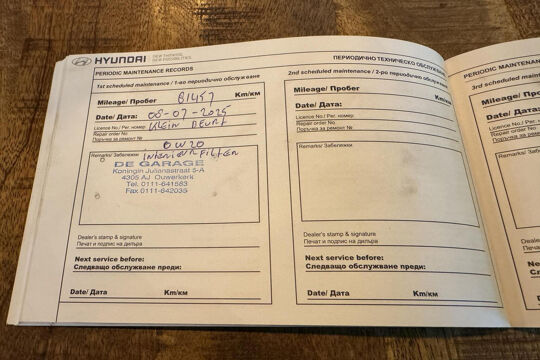 HYUNDAI
NEW THINKING.
NEW POSSIBILITIES.
PERIODIC MAINTENANCE RECORDS
1st scheduled maintenance / 1-во периодично обслужване
Mileage/ Пробег 81457 Km/км
Date/ Дата: 08-07-2025
Licence No./ Рег. номер
Repair order No. KLEIN BEURT
Поръчка за ремонт №
0W20
Remarks/ Забележки INTERIEURFILTER
DE GARAGE
Koningin Julianastraat 5-A
4305 AJ Ouwerkerk
Tel. 0111-641583
Fax 0111-642035
Dealer's stamp & signature
Печат и подпис на дилъра
Next service before:
Следващо обслужване преди:
Date/ Дата Km/км
ПЕРИОДИЧНО ТЕХНИЧЕСКО ОБСЛУЖВАНЕ
2nd scheduled maintenance / 2-ро периодично обслужване
Mileage/ Пробег Km/км
Date/ Дата:
Licence No./ Рег. номер
Repair order No.
Поръчка за ремонт №
Remarks/ Забележки
Dealer's stamp & signature
Печат и подпис на дилъра
Next service before:
Следващо обслужване преди:
Date/ Дата Km/км
PERIODIC MAINTENAN
3rd scheduled mainten
Mileage/ Про
Date/ Дата:
Licence No./ Рег.
Repair order No.
Поръчка за ремо
Remarks/ Забе
Dealer's
Печат и
Next
След
Date